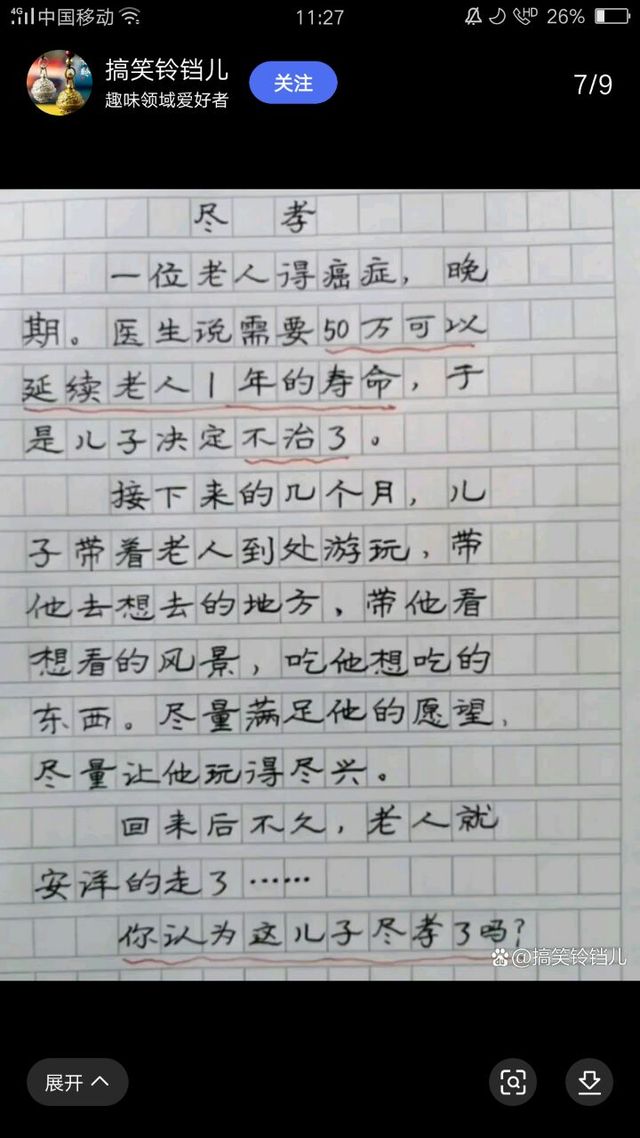 4G 中国移动 11:27 HD 26%
搞笑铃铛儿
趣味领域爱好者
关注
7/9
尽 孝
一位老人得癌症，晚
期。医生说需要50万可以
延续老人1年的寿命，于
是儿子决定不治了。
接下来的几个月，儿
子带着老人到处游玩，带
他去想去的地方、带他看
想看的风景，吃他想吃的
东西。尽量满足他的愿望、
尽量让他玩得尽兴。
回来后不久，老人就
安详的走了……
你认为这儿子尽孝了吗？
@搞笑铃铛儿
展开